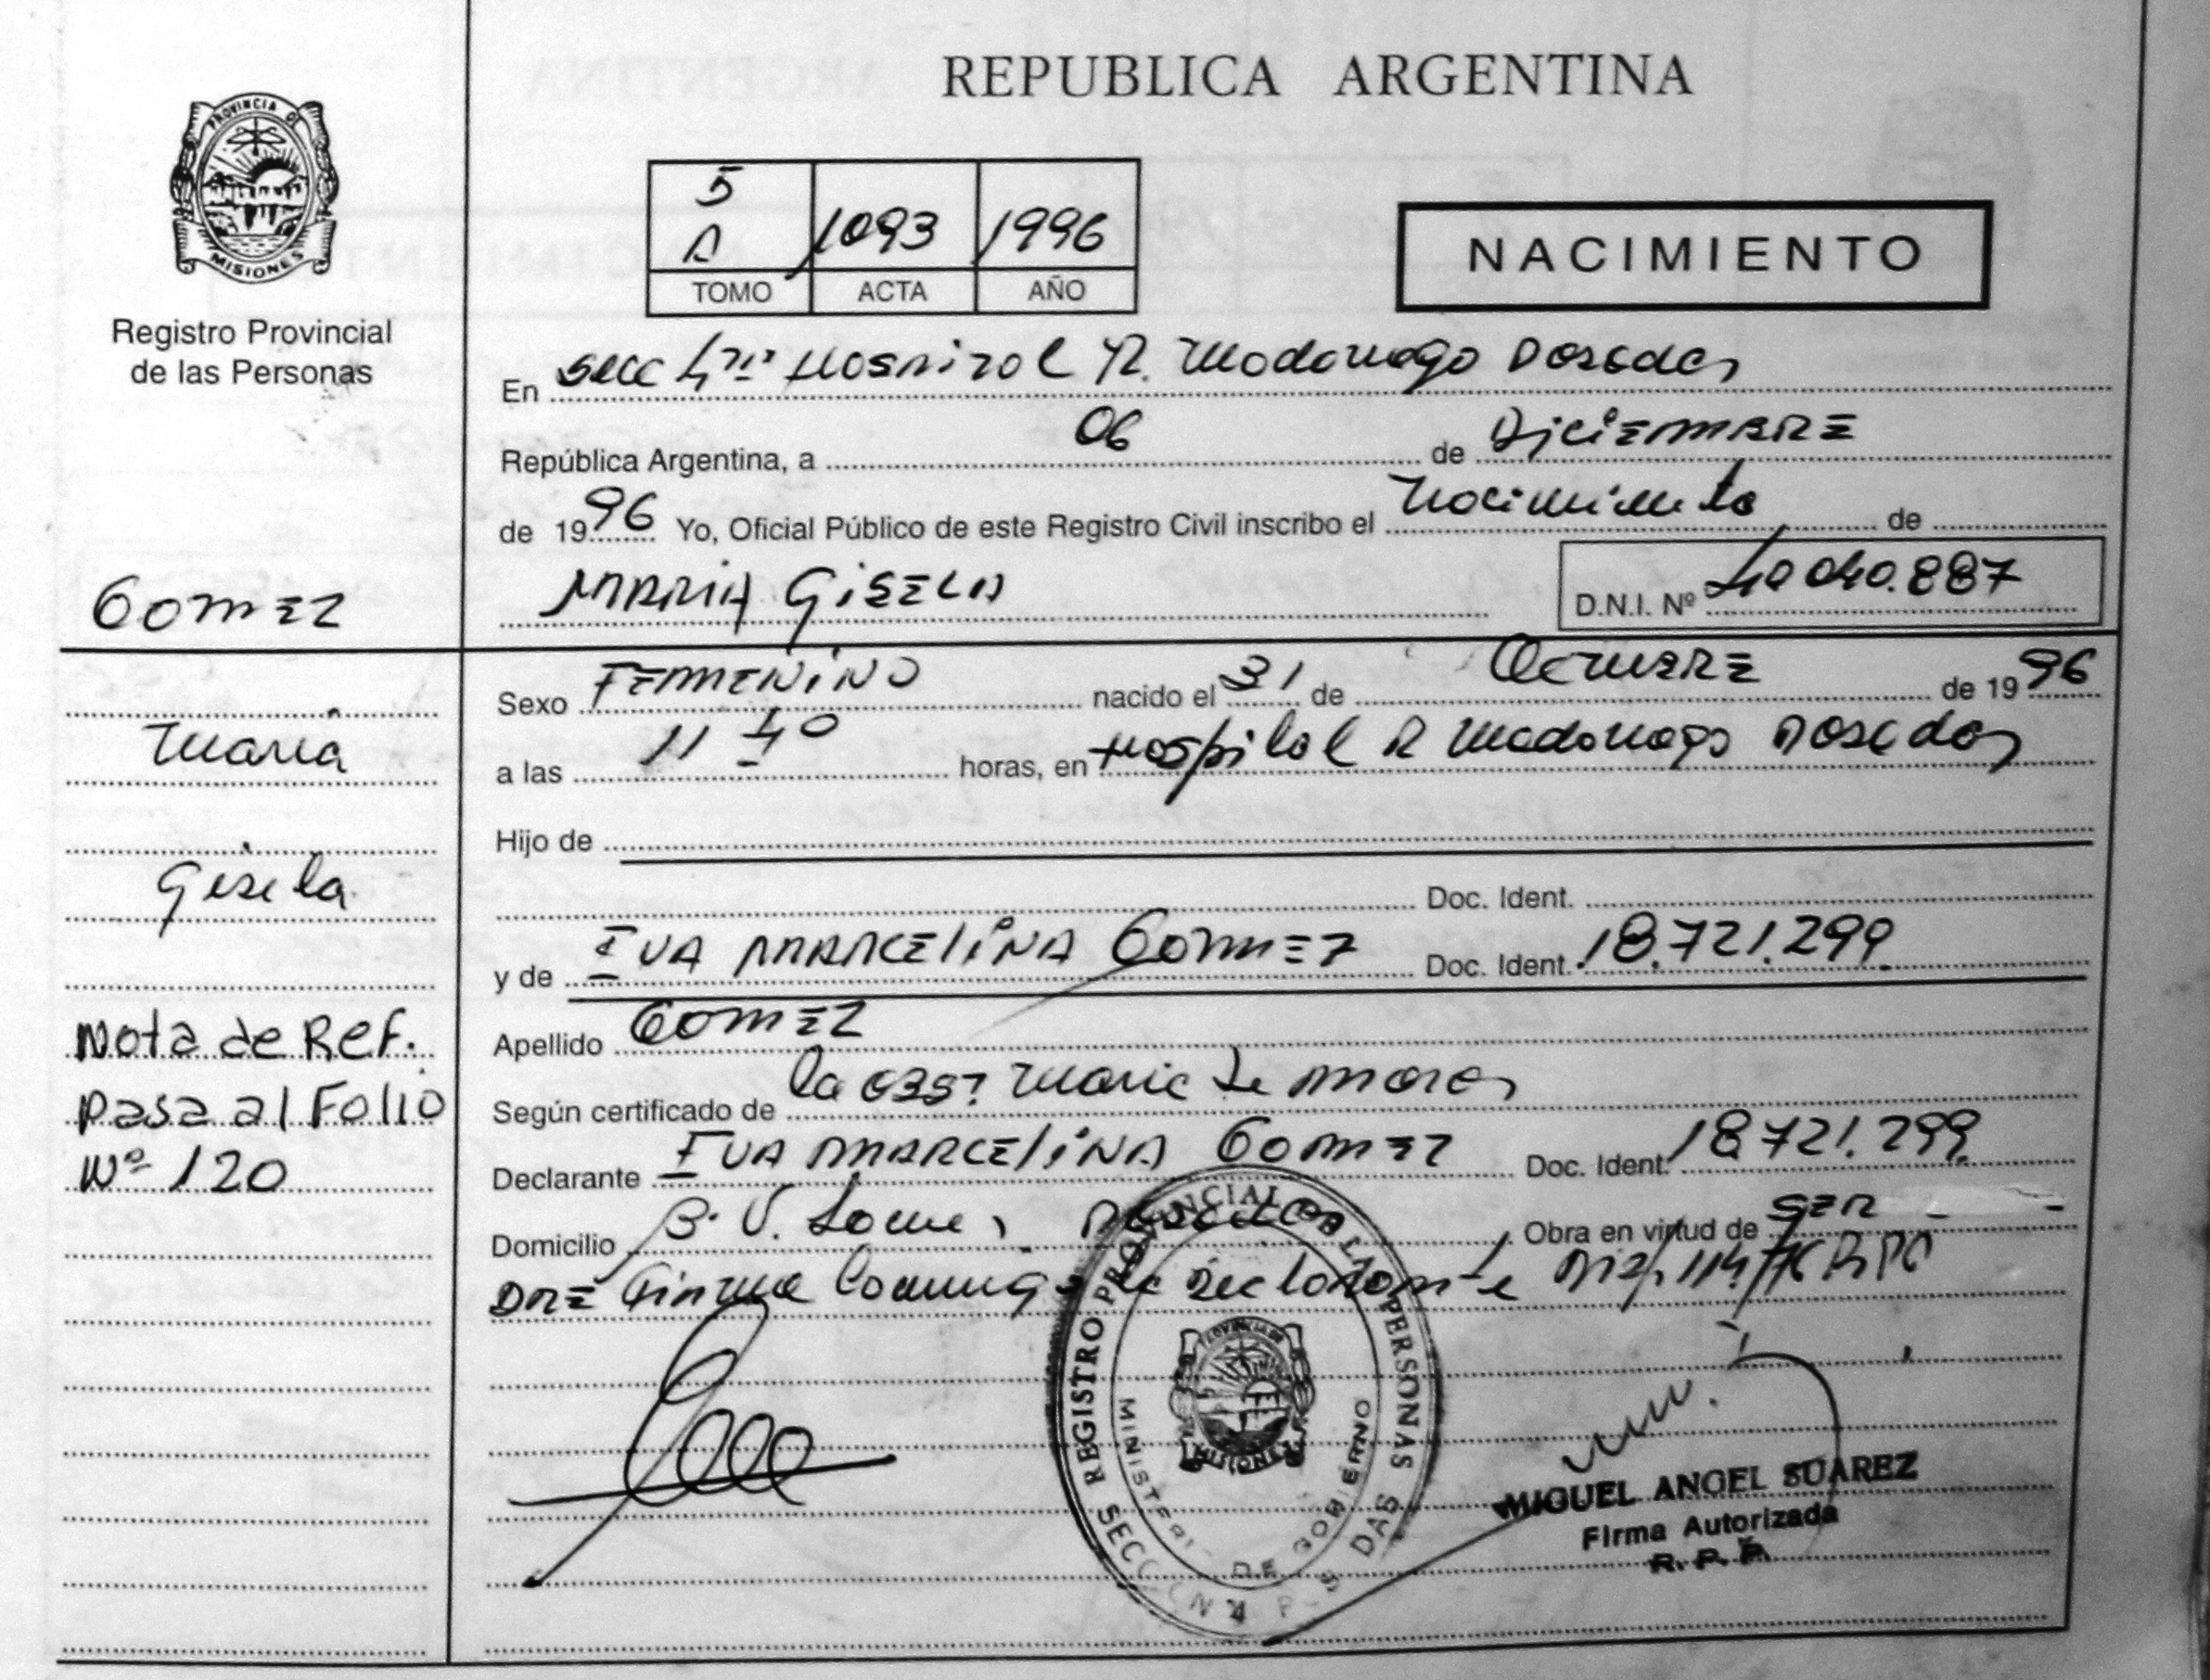 REPUBLICA ARGENTINA
PROVINCIA DE
MISIONES
Registro Provincial
de las Personas
5
A 1093 1996
TOMO ACTA AÑO
NACIMIENTO
En Secc 4ta Hospital R. Madariaga Posadas
República Argentina, a 06 de Diciembre
de 1996 Yo, Oficial Público de este Registro Civil inscribo el Nacimiento de
MARIA GISELA
D.N.I. Nº 40.040.887
GOMEZ
Maria
Gisela
Nota de Ref.
pasa al Folio
Nº 120
Sexo FEMENINO nacido el 31 de OCTUBRE de 1996
a las 11 40 horas, en Hospital R Madariaga Posadas
Hijo de
Doc. Ident.
y de EVA MARCELINA GOMEZ Doc. Ident. 18.721.299
Apellido GOMEZ
Según certificado de la Obst Maria de
Declarante EVA MARCELINA GOMEZ Doc. Ident. 18.721.299
Domicilio B. V. Posadas Obra en virtud de SER
MADRE Firma
REGISTRO PROVINCIAL DE LAS PERSONAS
MINISTERIO DE GOBIERNO
MISIONES
MIGUEL ANGEL SUAREZ
Firma Autorizada
R. P. P.